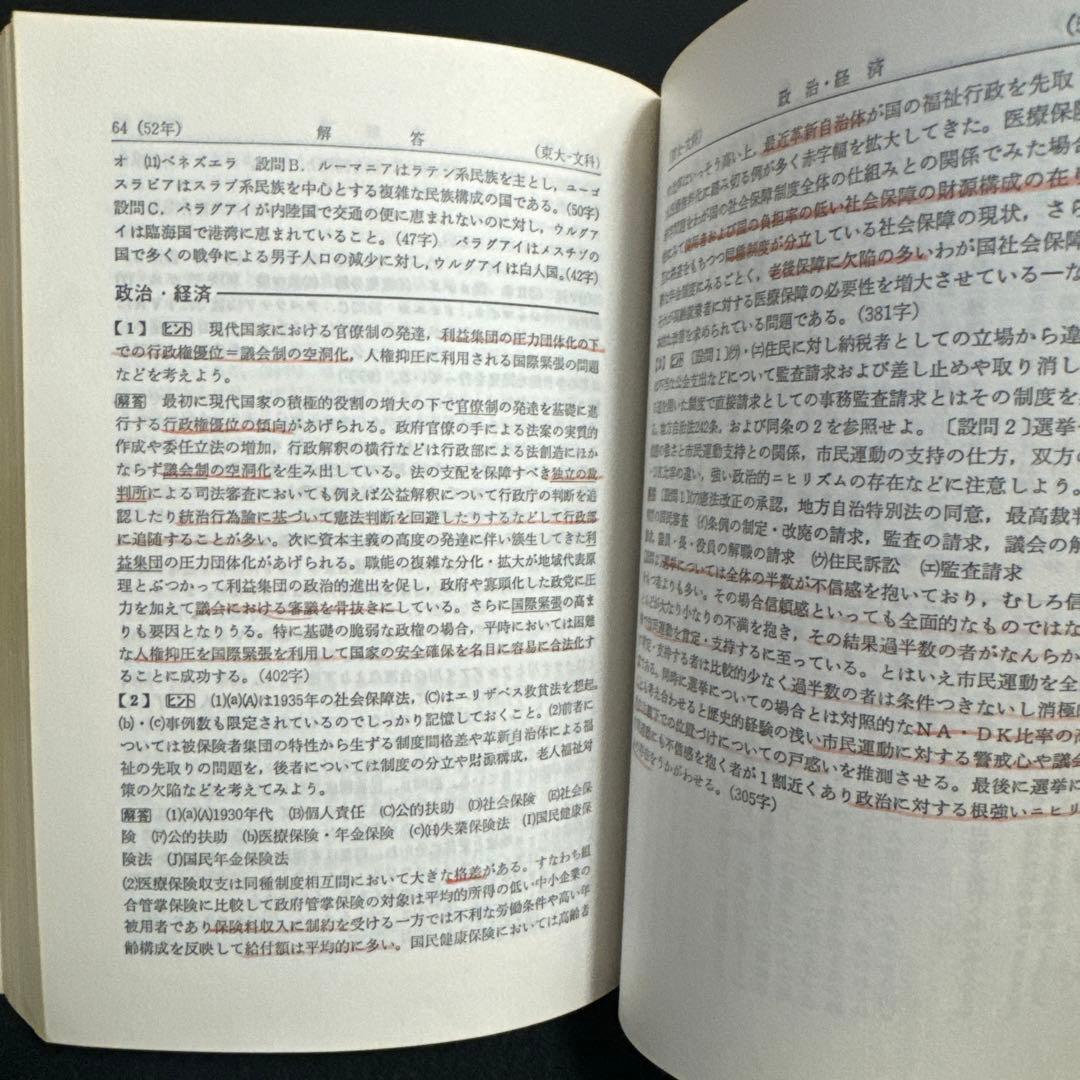 64 (52年)
解 答
(東大-文科)
オ ⑾ベネズエラ 設問B．ルーマニアはラテン系民族を主とし，ユーゴ
スラビアはスラブ系民族を中心とする複雑な民族構成の国である。(50字)
設問C．パラグアイが内陸国で交通の便に恵まれないのに対し，ウルグア
イは臨海国で港湾に恵まれていること。(47字) パラグアイはメスチゾの
国で多くの戦争による男子人口の減少に対し，ウルグアイは白人国。(42字)
政治・経済
【1】 ヒント 現代国家における官僚制の発達，利益集団の圧力団体化の下
での行政権優位＝議会制の空洞化，人権抑圧に利用される国際緊張の問題
などを考えよう。
解答 最初に現代国家の積極的役割の増大の下で官僚制の発達を基礎に進
行する行政権優位の傾向があげられる。政府官僚の手による法案の実質的
作成や委任立法の増加，行政解釈の横行などは行政部による法創造にほか
ならず議会制の空洞化を生み出している。法の支配を保障すべき独立の裁
判所による司法審査においても例えば公益解釈について行政庁の判断を追
認したり統治行為論に基づいて憲法判断を回避したりするなどして行政部
に追随することが多い。次に資本主義の高度の発達に伴い簇生してきた利
益集団の圧力団体化があげられる。職能の複雑な分化・拡大が地域代表原
理とぶつかって利益集団の政治的進出を促し，政府や寡頭化した政党に圧
力を加えて議会における審議を骨抜きにしている。さらに国際緊張の高ま
りも要因となりうる。特に基礎の脆弱な政権の場合，平時においては困難
な人権抑圧を国際緊張を利用して国家の安全確保を名目に容易に合法化す
ることに成功する。(402字)
【2】 ヒント (1)(a)(A)は1935年の社会保障法，(C)はエリザベス救貧法を想起。
(b)・(c)事例数も限定されているのでしっかり記憶しておくこと。(2)前者に
ついては被保険者集団の特性から生ずる制度間格差や革新自治体による福
祉の先取りの問題を，後者については制度の分立や財源構成，老人福祉対
策の欠陥などを考えてみよう。
解答 (1)(a)(A)1930年代 (B)個人責任 (C)公的扶助 (D)社会保険 (E)社会保
険 (F)公的扶助 (b)医療保険・年金保険 (c)(H)失業保険法 (I)国民健康保
険法 (J)国民年金保険法
(2)医療保険収支は同種制度相互間において大きな格差がある。すなわち組
合管掌保険に比較して政府管掌保険の対象は平均的所得の低い中小企業の
被用者であり保険料収入に制約を受ける一方では不利な労働条件や高い年
齢構成を反映して給付額は平均的に多い。国民健康保険においては高齢者
政治・経済
いっそう高い上，最近革新自治体が国の福祉行政を先取
に踏み切る例が多く赤字幅を拡大してきた。医療保
わが国の社会保障制度全体の仕組みとの関係でみた場合
および国の負担率の低い社会保障の財源構成の在り
をもちつつ同種制度が分立している社会保障の現状，さら
にみるごとく，老後保障に欠陥の多いわが国社会保障
に対する医療保障の必要性を増大させている一な
を求められている問題である。(381字)
ヒント 〔設問1〕(ウ)・(エ)住民に対し納税者としての立場から違
な公金支出などについて監査請求および差し止めや取り消し
を用いた制度で直接請求としての事務監査請求とはその制度を
地方自治法242条，および同条の2を参照せよ。〔設問2〕選挙
の強さと市民運動支持との関係，市民運動の支持の仕方，双方の
比率の違い，強い政治的ニヒリズムの存在などに注意しよう。
憲法改正の承認，地方自治特別法の同意，最高裁判
の国民審査 (イ)条例の制定・改廃の請求，監査の請求，議会の解
議員・長・役員の解職の請求 (ウ)住民訴訟 (エ)監査請求
選挙については全体の半数が不信感を抱いており，むしろ信
よりも多い。その場合信頼感といっても全面的なものではな
大なり小なりの不満を抱き，その結果過半数の者がなんらか
市民運動を肯定・支持するに至っている。とはいえ市民運動を全
・支持する者は比較的少なく過半数の者は条件つきないし消極
同時に選挙についての場合とは対照的なNA・DK比率の高
考え合わせると歴史的経験の浅い市民運動に対する警戒心や議会
での位置づけについての戸惑いを推測させる。最後に選挙に
も不信感を抱く者が1割近くあり政治に対する根強いニヒリ
をうかがわせる。(305字)